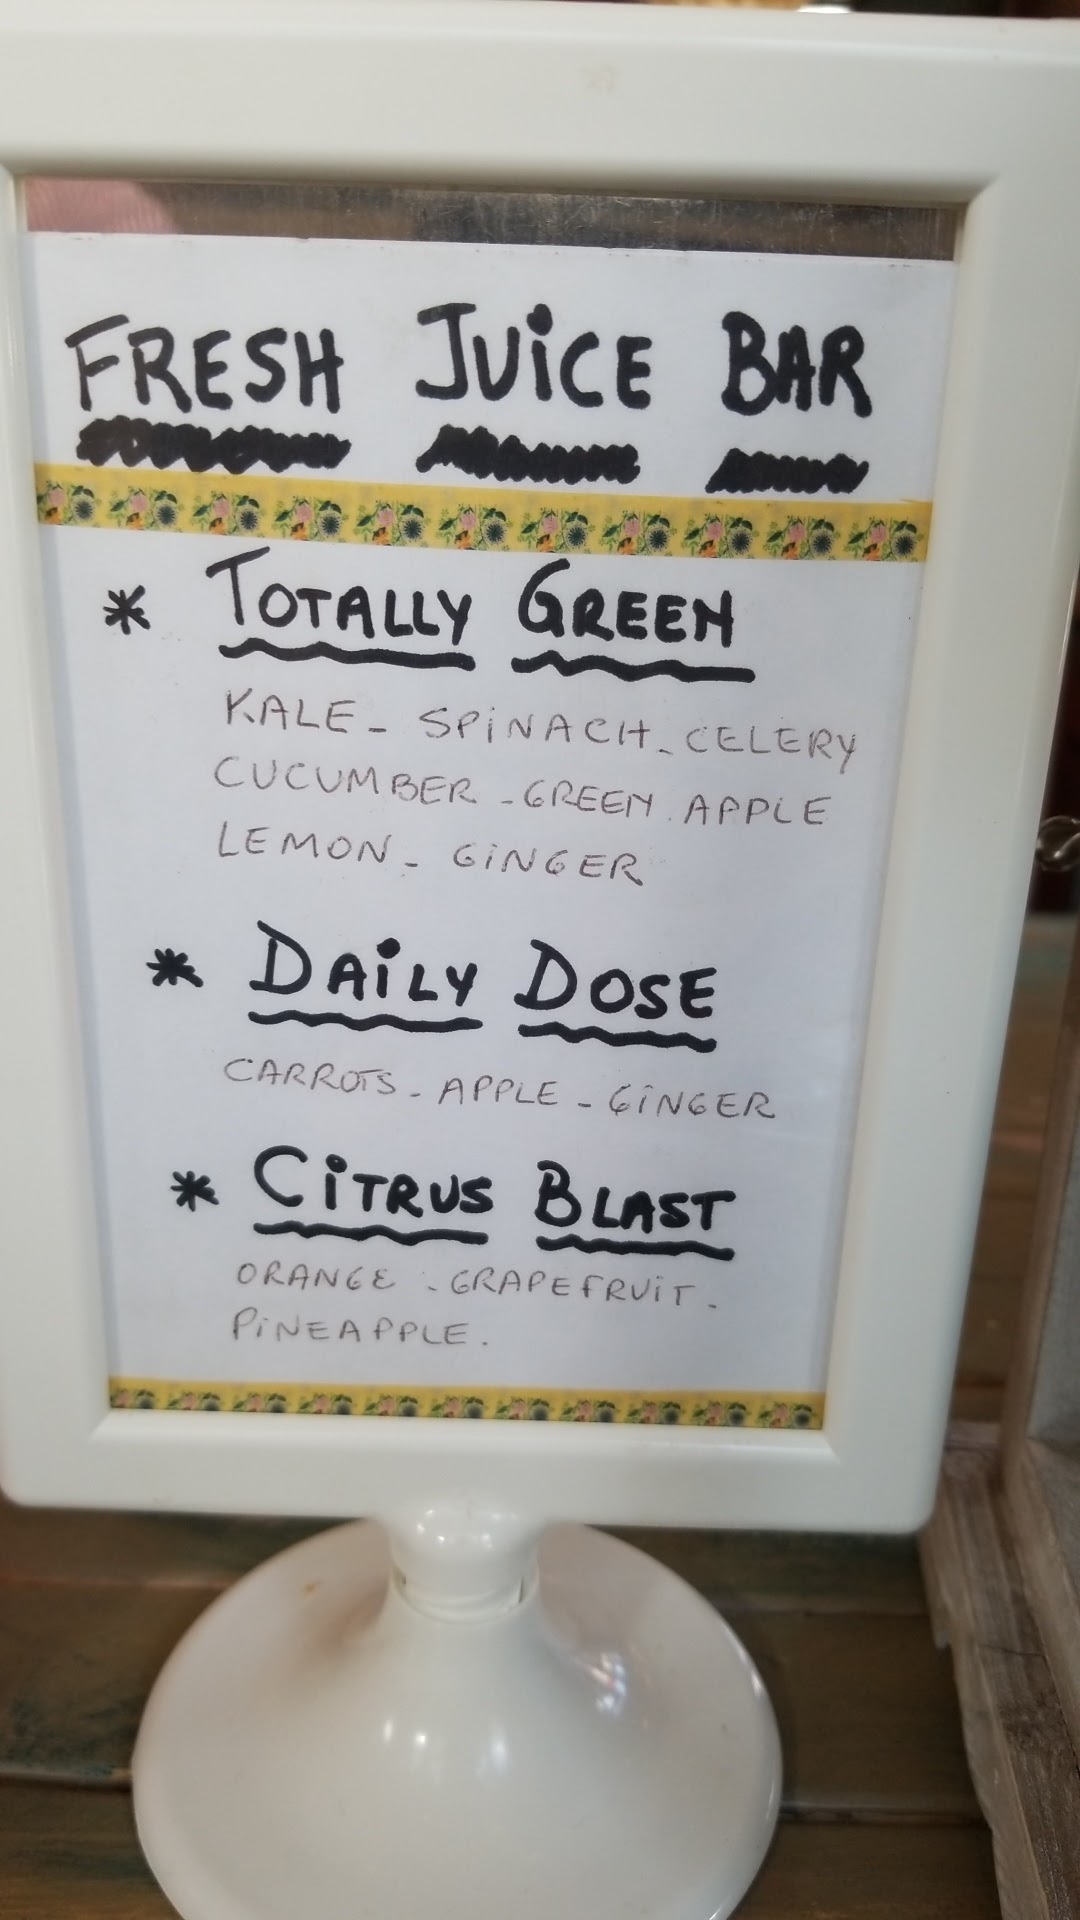 FRESH JUiCE BAR
* TOTALLY GREEN
KALE - SPiNACH - CELERY
CUCUMBER - GREEN APPLE
LEMON - GiNGER
* DAiLY DOSE
CARROTS - APPLE - GiNGER
* CiTRUS BLAST
ORANGE - GRAPEFRUiT -
PiNEAPPLE.